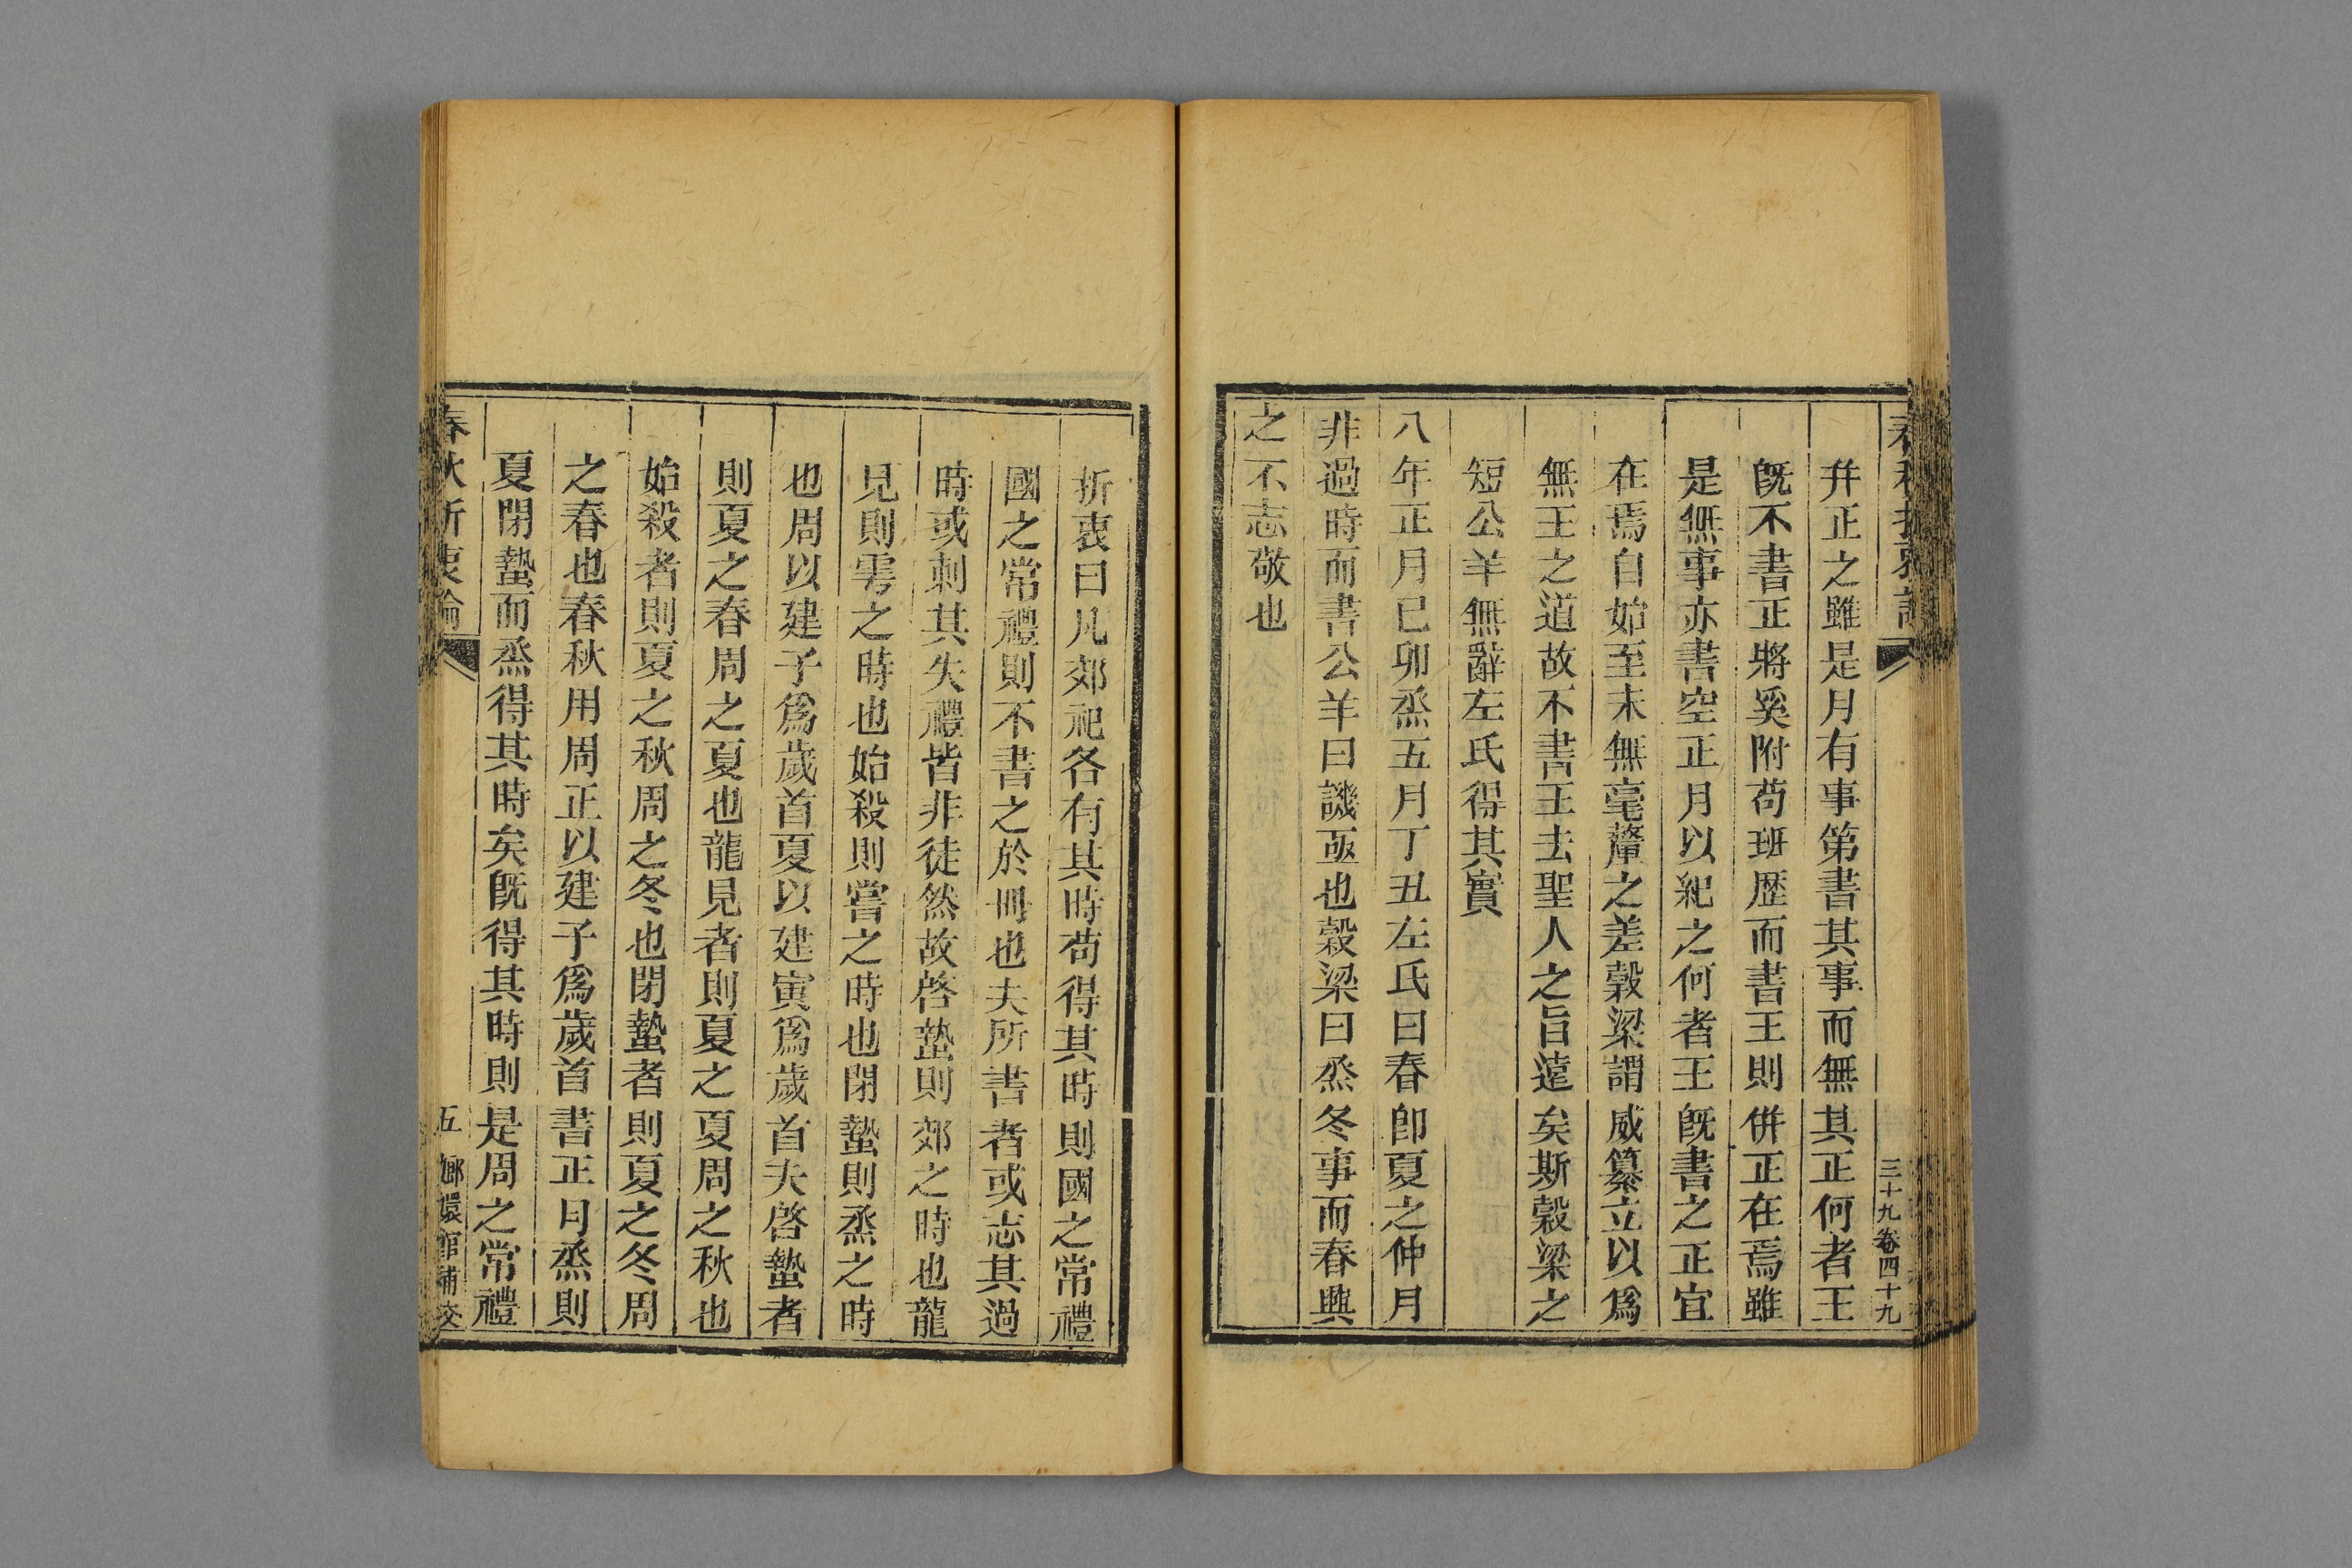 春秋折衷論
三十九卷四十九
幷正之雖是月有事第書其事而無其正何者王
旣不書正將奚附苟班歷而書王則併正在焉雖
是無事亦書空正月以紀之何者王旣書之正宜
在焉自始至末無毫釐之差穀梁謂威篡立以爲
無王之道故不書王去聖人之旨遠矣斯穀梁之
短公羊無辭左氏得其實
八年正月已卯烝五月丁丑左氏曰春卽夏之仲月
非過時而書公羊曰譏亟也穀梁曰烝冬事而春興
之不志敬也
折衷曰凡郊祀各有其時苟得其時則國之常禮
國之常禮則不書之於冊也夫所書者或志其過
時或刺其失禮皆非徒然故啓蟄則郊之時也龍
見則雩之時也始殺則嘗之時也閉蟄則烝之時
也周以建子爲歲首夏以建寅爲歲首夫啓蟄者
則夏之春周之夏也龍見者則夏之夏周之秋也
始殺者則夏之秋周之冬也閉蟄者則夏之冬周
之春也春秋用周正以建子爲歲首書正月烝則
夏閉蟄而烝得其時矣旣得其時則是周之常禮
春秋折衷論
五
嫏嬛館補校